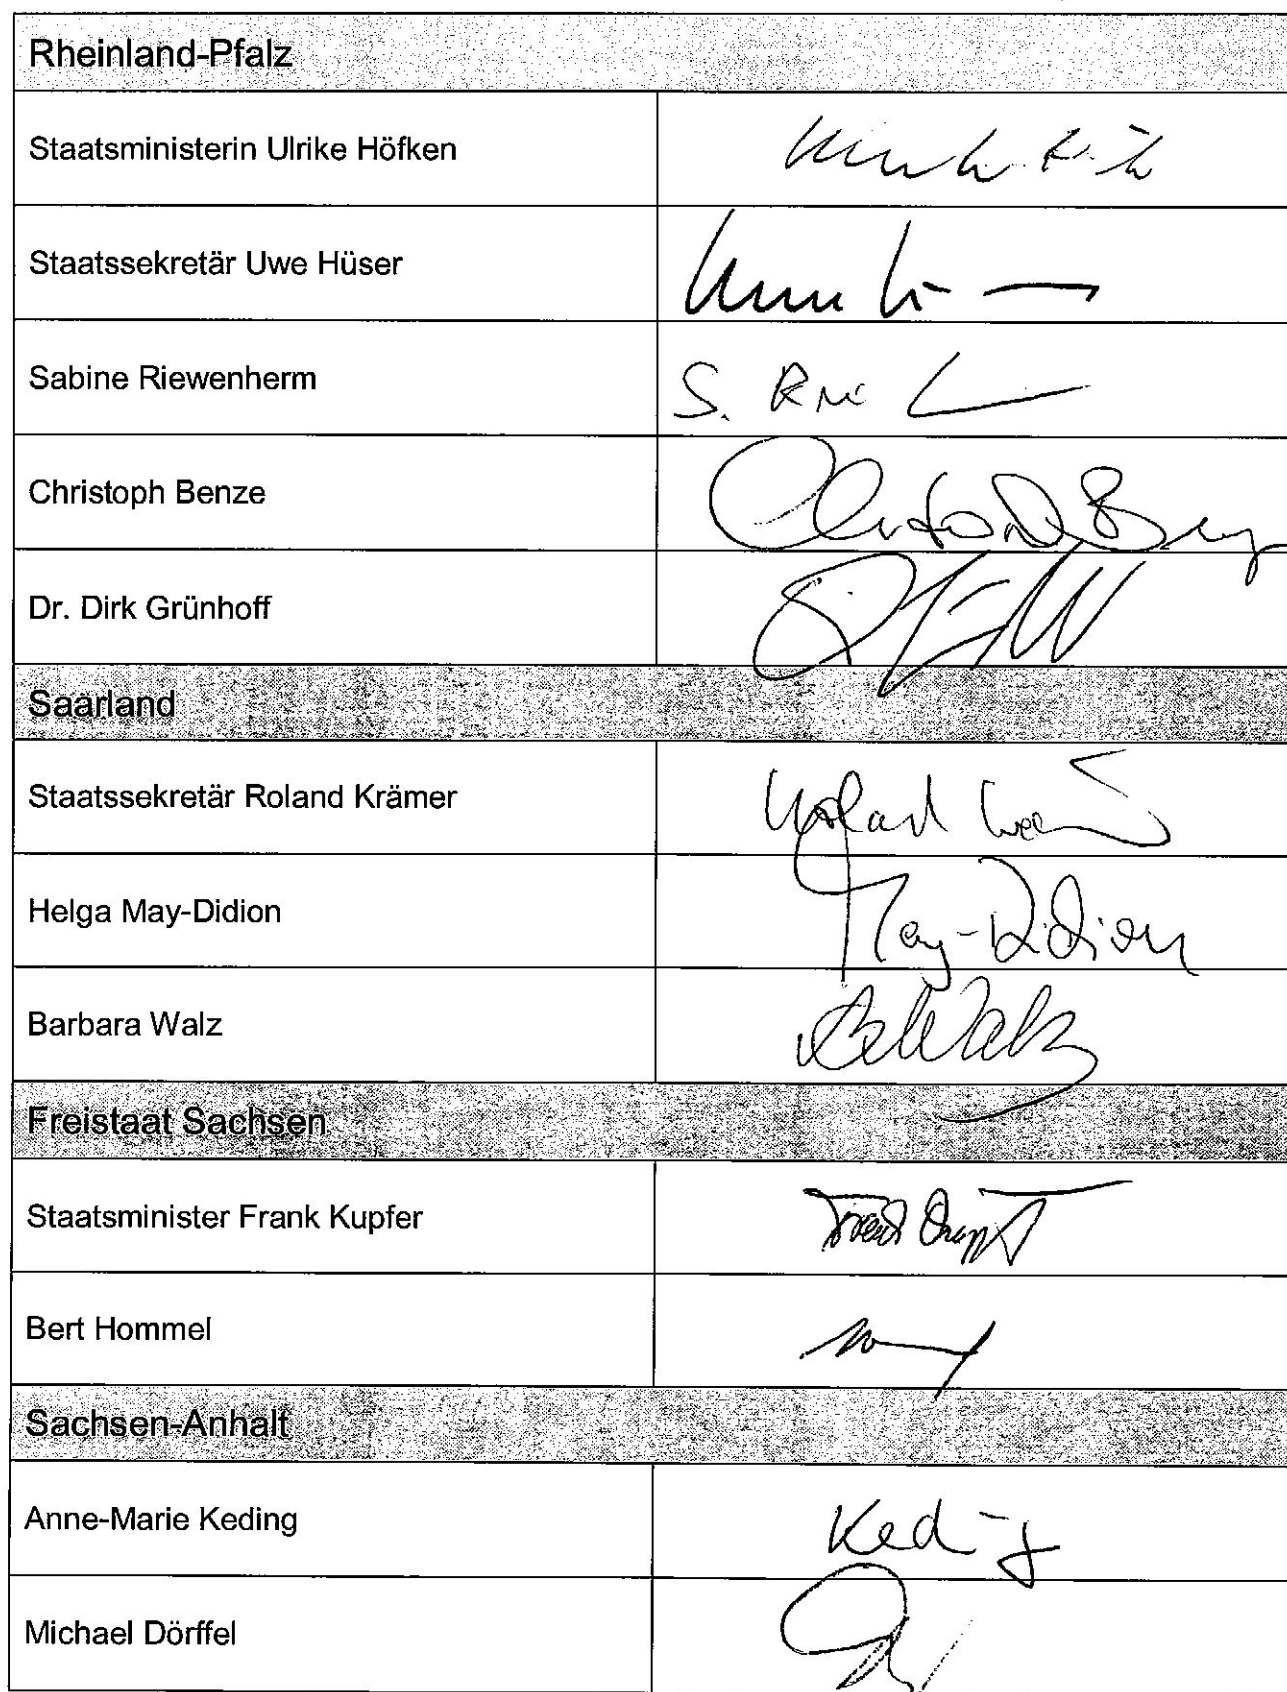 Rheinland-Pfalz
Staatsministerin Ulrike Höfken
Staatssekretär Uwe Hüser
Sabine Riewenherm S.
Christoph Benze
Dr. Dirk Grünhoff
Saarland
Staatssekretär Roland Krämer
Helga May-Didion May-Didion
Barbara Walz
Freistaat Sachsen
Staatsminister Frank Kupfer
Bert Hommel
Sachsen-Anhalt
Anne-Marie Keding Keding
Michael Dörffel